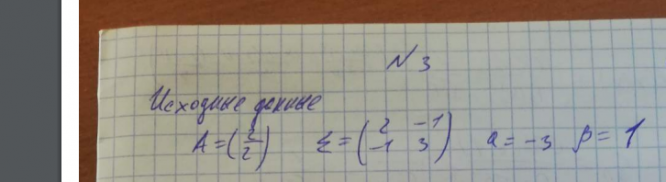 N 3
Исходные данные
A = (2 2) Σ = (2 -1 -1 3) a = -3 β = 1